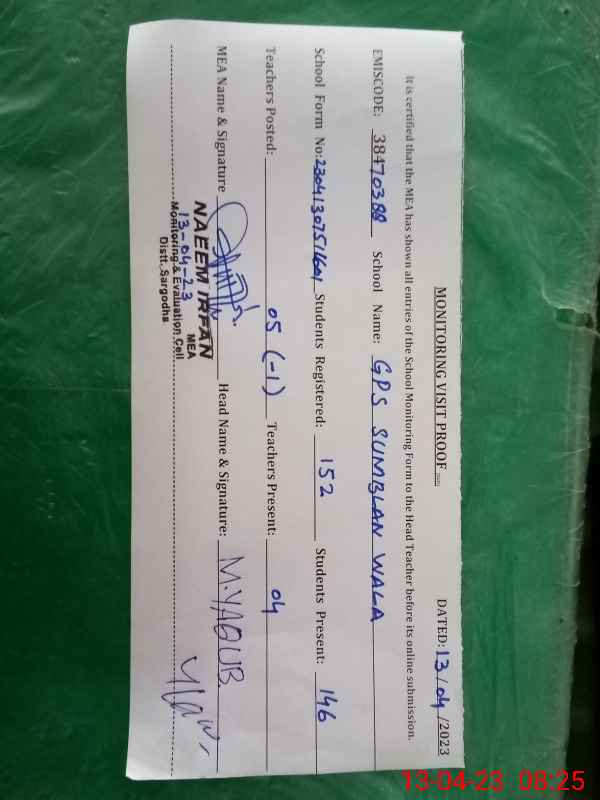 MONITORING VISIT PROOF
DATED: 13/04/2023
It is certified that the MEA has shown all entries of the School Monitoring Form to the Head Teacher before its online submission.
EMISCODE: 38470388 School Name: GPS SUMBLAN WALA
School Form No: Students Registered: 152 Students Present: 146
Teachers Posted: 05 (-1) Teachers Present: 04
MEA Name & Signature Head Name & Signature: M.YAQUB.
NAEEM IRFAN
MEA
Monitoring & Evaluation Cell
13-04-23
Distt. Sargodha
13-04-23 08:25